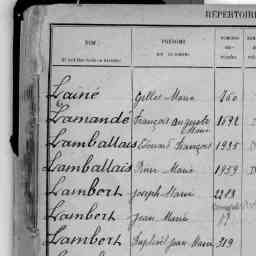 RÉPERTOIRE
NOM. PRÉNOMS NUMÉROS
Lainé Gilles Marie 160
Lamandé François Auguste 1692
Marie
Lamballais Edouard François 1935
Lamballais Pierre Marie 1959
Lambert Joseph Marie
Lambert Jean Marie
Lambert Baptiste Jean Marie 319